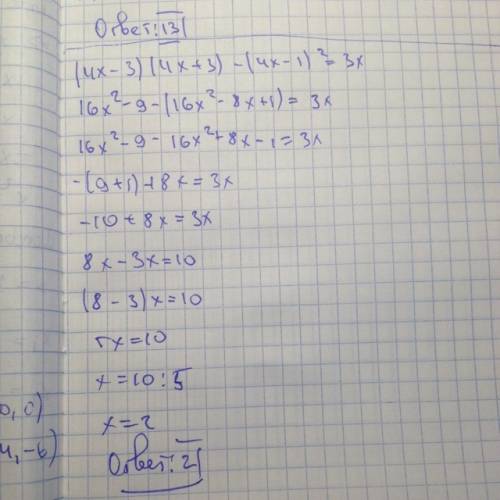 Ответ: 13
(4x-3)(4x+3)-(4x-1)²=3x
16x²-9-(16x²-8x+1)=3x
16x²-9-16x²+8x-1=3x
-(9+1)+8x=3x
-10+8x=3x
8x-3x=10
(8-3)x=10
5x=10
x=10:5
0,0)
x=2
4,-6)
Ответ: 2